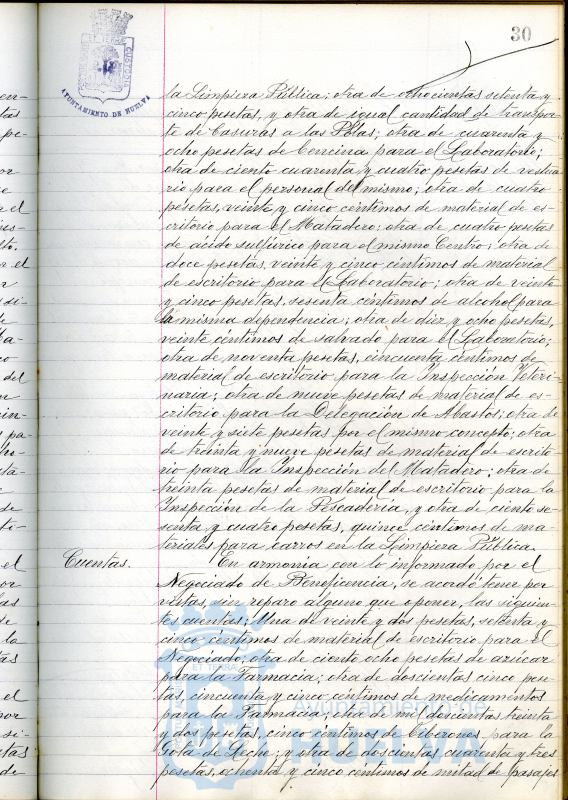 30
AYUNTAMIENTO DE HUELVA
la Limpieza Pública; otra de ochocientas setenta y
cinco pesetas, y otra de igual cantidad de transpor-
te de basuras a las Polas; otra de cuarenta y
ocho pesetas de bencina para el Laboratorio;
otra de ciento cuarenta y cuatro pesetas de vestua-
rio para el personal del mismo; otra de cuatro
pesetas, veinte y cinco céntimos de material de es-
critorio para el Matadero; otra de cuatro pesetas
de ácido sulfúrico para el mismo Centro; otra de
doce pesetas, veinte y cinco céntimos de material
de escritorio para el Laboratorio; otra de veinte
y cinco pesetas, sesenta céntimos de alcohol para
la misma dependencia; otra de diez y ocho pesetas,
veinte céntimos de salvado para el Laboratorio;
otra de noventa pesetas, cincuenta céntimos de
material de escritorio para la Inspección Veteri-
naria; otra de nueve pesetas de material de es-
critorio para la Delegación de Abastos; otra de
veinte y siete pesetas por el mismo concepto; otra
de treinta y nueve pesetas de material de escrito-
rio para la Inspección del Matadero; otra de
treinta pesetas de material de escritorio para la
Inspección de la Pescadería, y otra de ciento se-
senta y cuatro pesetas, quince céntimos de ma-
teriales para carros en la Limpieza Pública.
Cuentas. En armonía con lo informado por el
Negociado de Beneficencia, se acordó tener por
vistas, sin reparo alguno que oponer, las siguien-
tes cuentas: Una de veinte y dos pesetas, setenta y
cinco céntimos de material de escritorio para el
Negociado; otra de ciento ocho pesetas de azúcar
para la Farmacia; otra de doscientas cinco pese-
tas, cincuenta y cinco céntimos de medicamentos
para la Farmacia; otra de mil doscientas treinta
y dos pesetas, cinco céntimos de biberones para la
Gota de Leche; y otra de doscientas cuarenta y tres
pesetas, ochenta y cinco céntimos de mitad de pasajes
Ayuntamiento de
HUELVA